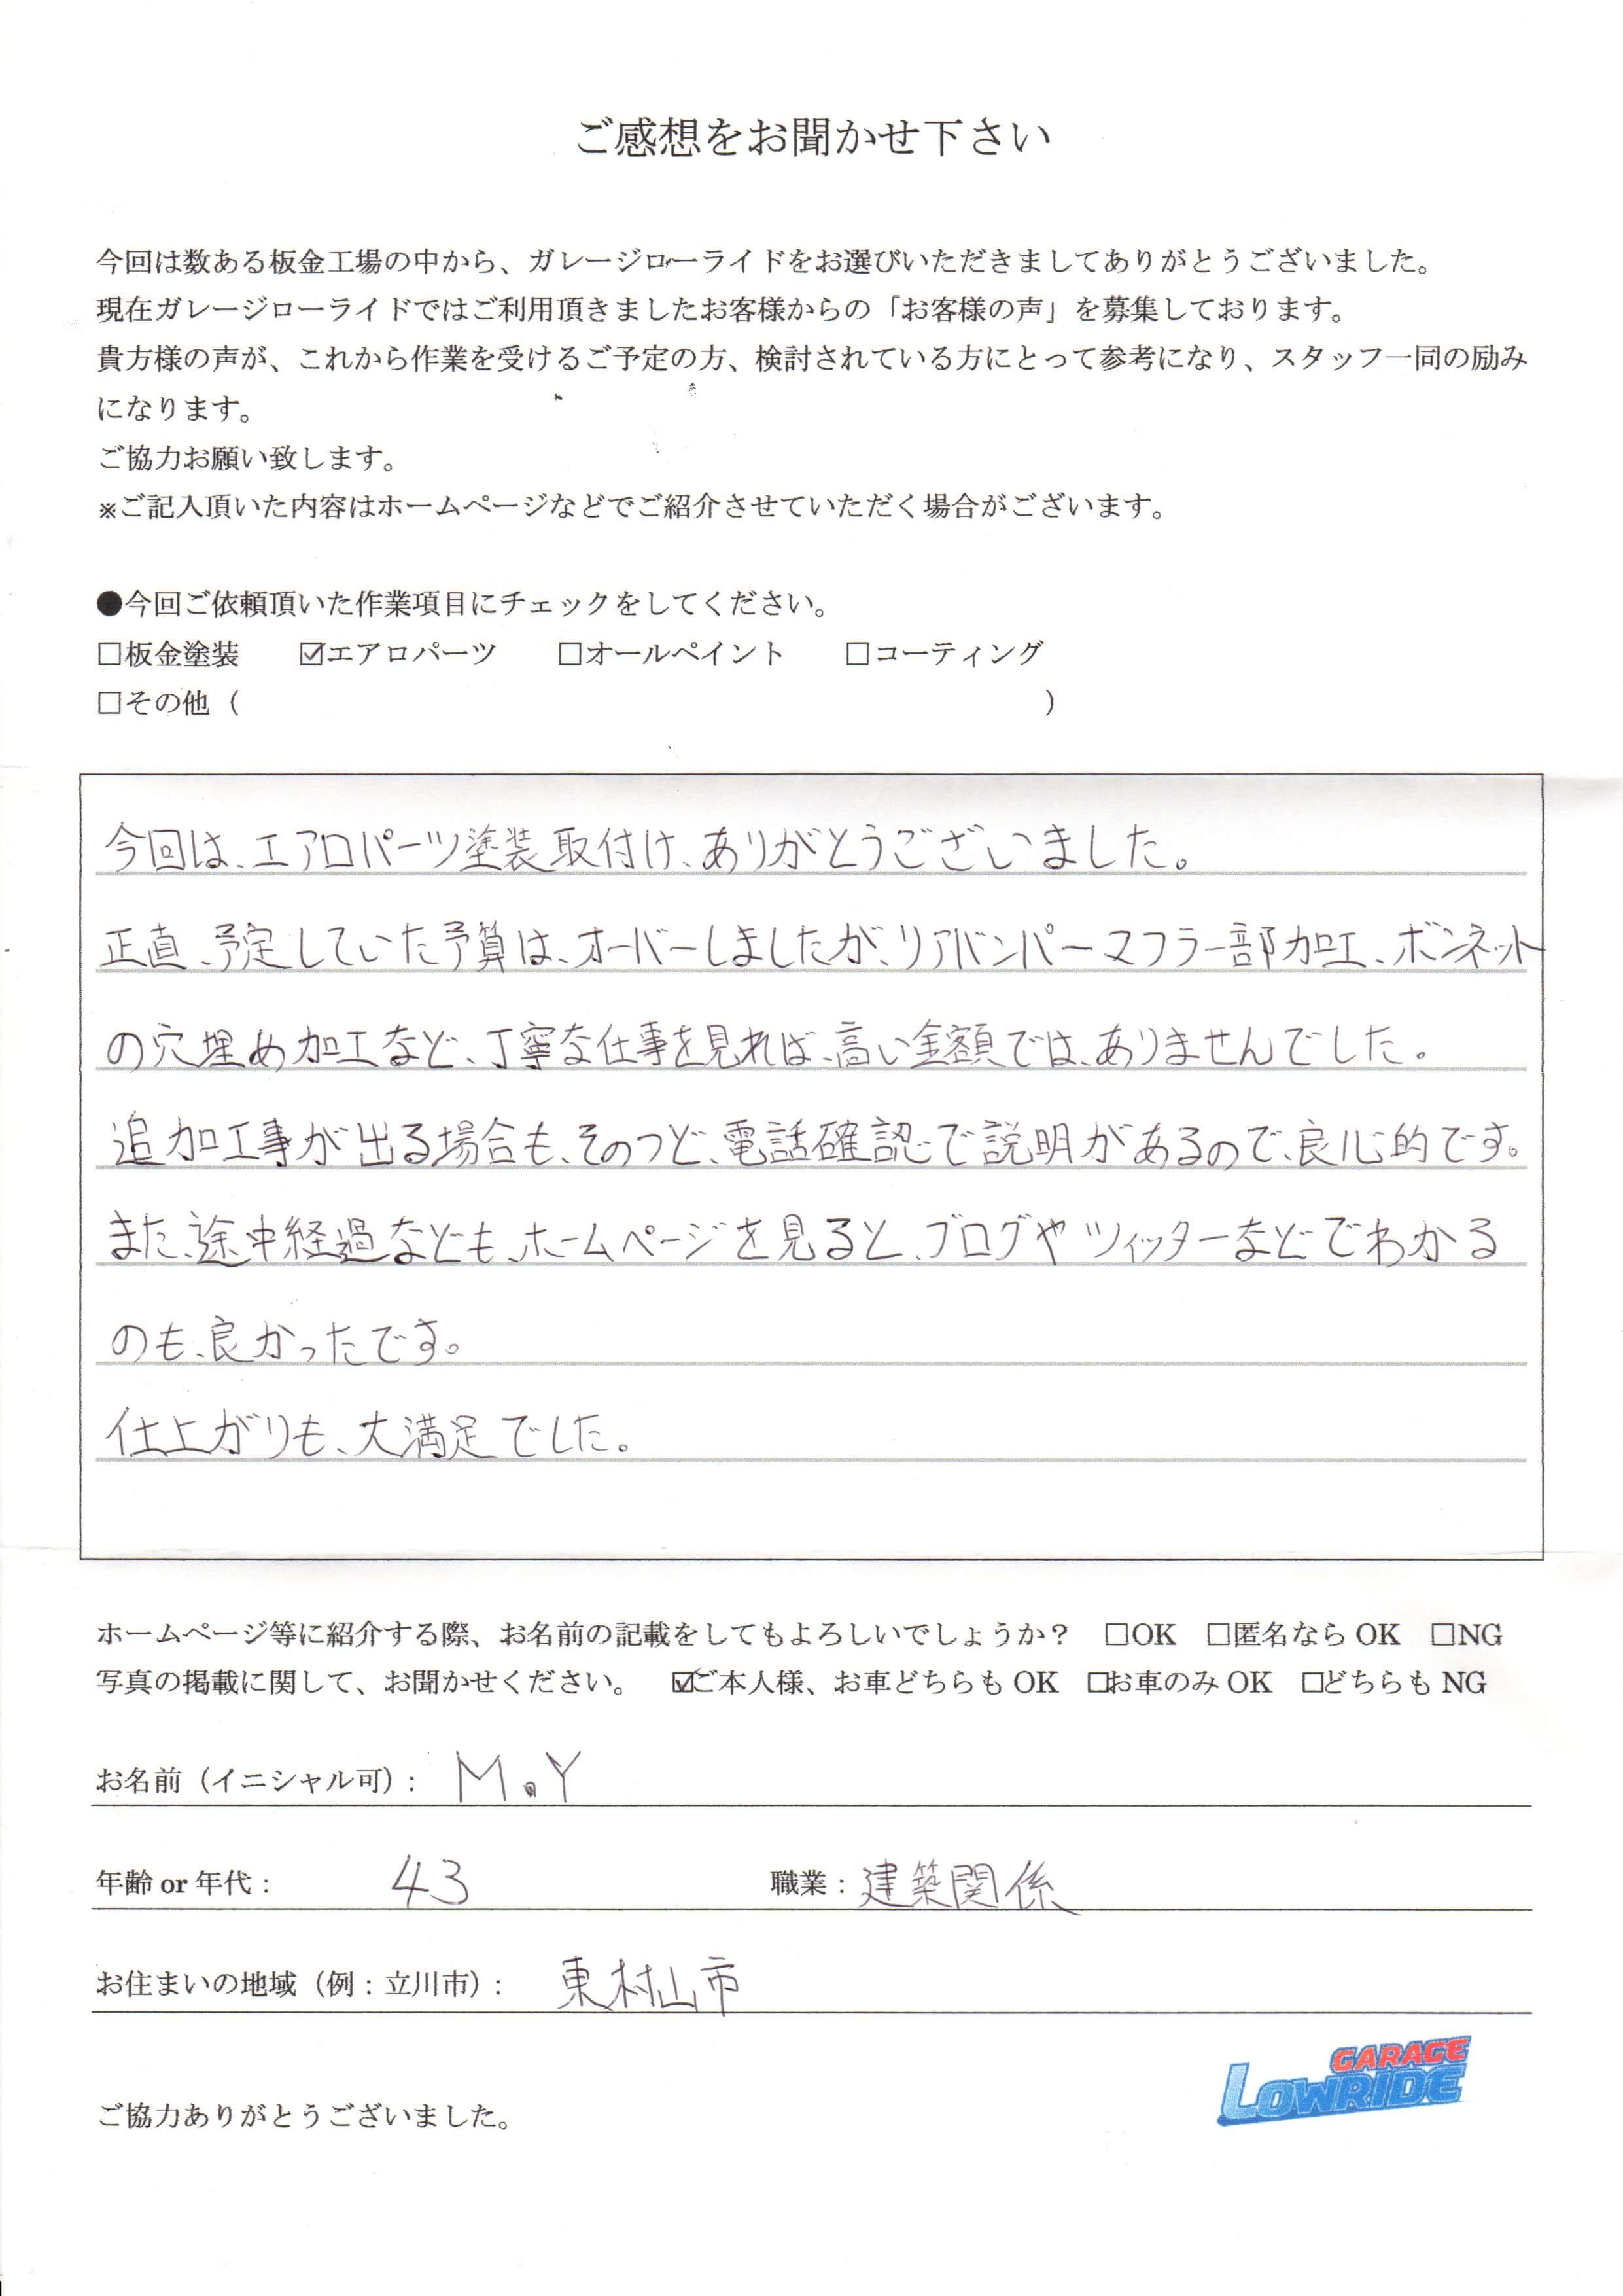 ご感想をお聞かせ下さい
今回は数ある板金工場の中から、ガレージローライドをお選びいただきましてありがとうございました。
現在ガレージローライドではご利用頂きましたお客様からの「お客様の声」を募集しております。
貴方様の声が、これから作業を受けるご予定の方、検討されている方にとって参考になり、スタッフ一同の励み
になります。
ご協力お願い致します。
※ご記入頂いた内容はホームページなどでご紹介させていただく場合がございます。
●今回ご依頼頂いた作業項目にチェックをしてください。
□板金塗装 ☑エアロパーツ □オールペイント □コーティング
□その他（ ）
今回は、エアロパーツ塗装取付け、ありがとうございました。
正直、予定していた予算は、オーバーしましたが、リアバンパーマフラー部加工、ボンネット
の穴埋め加工など、丁寧な仕事を見れば、高い金額では、ありませんでした。
追加工事が出る場合も、そのつど、電話確認で説明があるので、良心的です。
また、途中経過なども、ホームページを見ると、ブログやツィッターなどでわかる
のも、良かったです。
仕上がりも、大満足でした。
ホームページ等に紹介する際、お名前の記載をしてもよろしいでしょうか？ □OK □匿名なら OK □NG
写真の掲載に関して、お聞かせください。 ☑ご本人様、お車どちらも OK □お車のみ OK □どちらも NG
お名前（イニシャル可）： M.Y
年齢 or 年代： 43 職業：建築関係
お住まいの地域（例：立川市）： 東村山市
GARAGE
LOWRIDE
ご協力ありがとうございました。